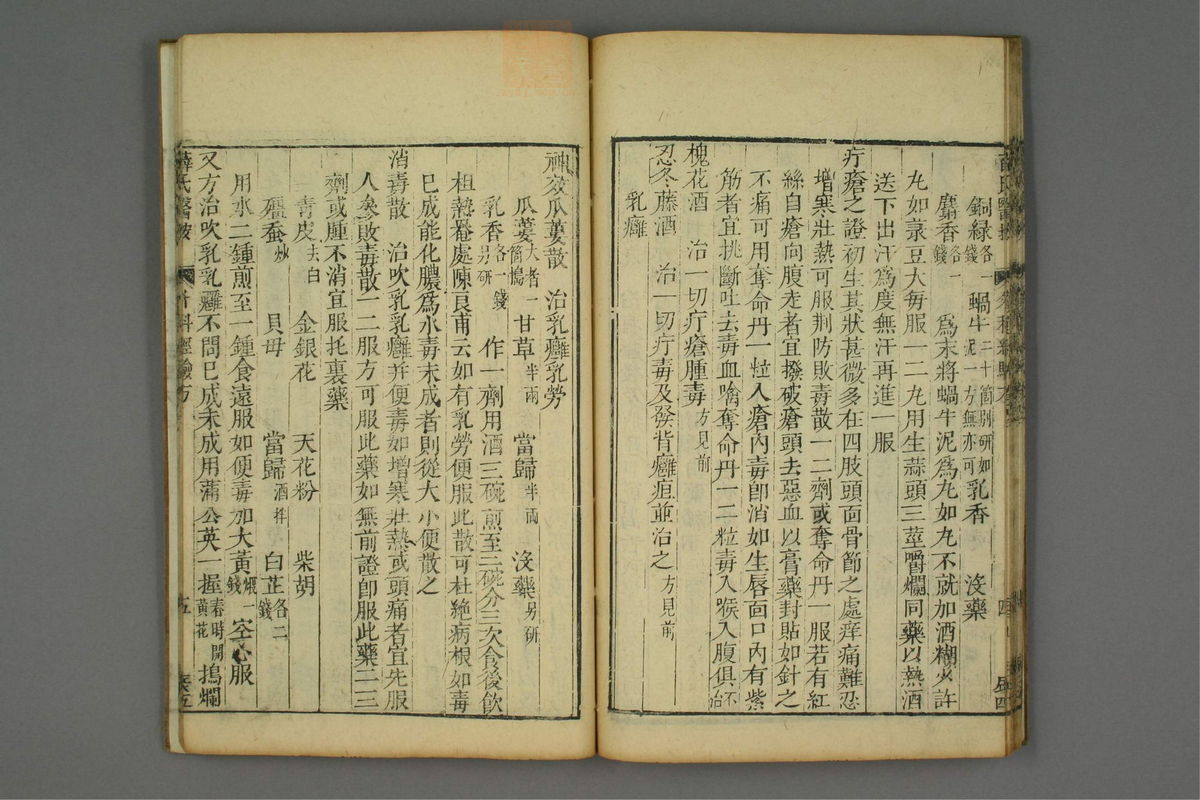 銅綠各一錢 蝸牛二十箇別研如泥一方無亦可 乳香 沒藥
麝香各一錢 爲末將蝸牛泥爲丸如丸不就加酒糊些許
丸如菉豆大每服一二丸用生蒜頭三莖嚼爛同藥以熱酒
送下出汗爲度無汗再進一服
疔瘡之證初生其狀甚微多在四肢頭面骨節之處痒痛難忍
增寒壯熱可服荆防敗毒散一二劑或奪命丹一服若有紅
絲自瘡向腹走者宜撥破瘡頭去惡血以膏藥封貼如針之
不痛可用奪命丹一粒入瘡內毒卽消如生唇面口內有紫
筋者宜挑斷吐去毒血噙奪命丹一二粒毒入喉入腹俱不治
槐花酒 治一切疔瘡腫毒方見前
忍冬藤酒 治一切疔毒及發背癰疽並治之方見前
乳癰
神效瓜蔞散 治乳癰乳勞
瓜蔞大者一箇搗 甘草半兩 當歸半兩 沒藥另研
乳香各一錢另研 作一劑用酒三碗煎至二碗分三次食後飲
相熱罨處陳良甫云如有乳勞便服此散可杜絶病根如毒
已成能化膿爲水毒未成者則從大小便散之
消毒散 治吹乳乳癰并便毒如增寒壯熱或頭痛者宜先服
人參敗毒散一二服方可服此藥如無前證卽服此藥二三
劑或腫不消宜服托裏藥
青皮去白 金銀花 天花粉 柴胡
殭蚕炒 貝母 當歸酒拌 白芷各二錢
用水二鍾煎至一鍾食遠服如便毒加大黃煨一錢空心服
又方治吹乳乳癰不問已成未成用蒲公英一握春時開黃花搗爛
薛氏醫按 外科經驗方 五